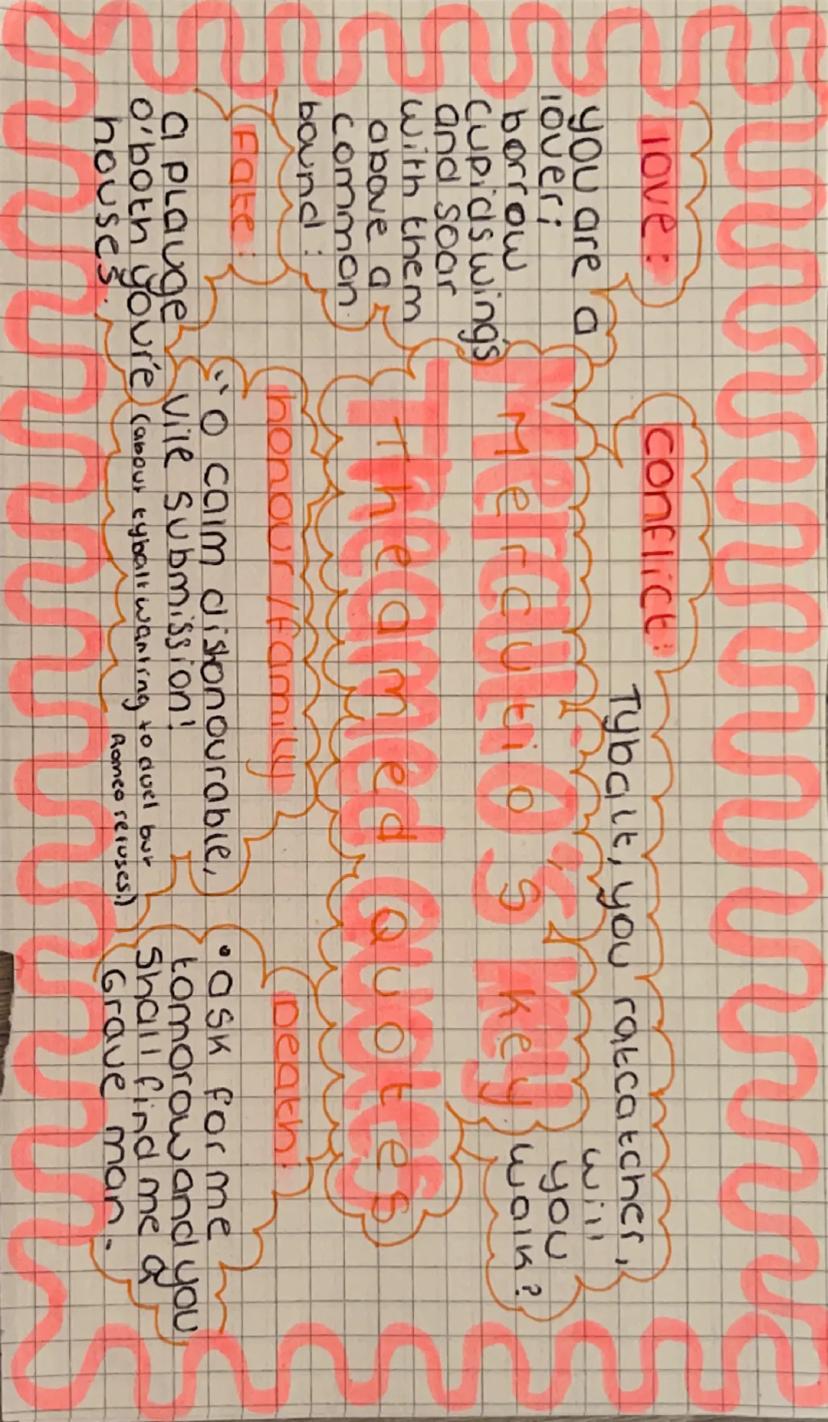 love:
you are a
lover;
borrow
cupids wings
and soar
with them
above a
common
bound:
conflict:
Tybalt, you ratcatcher,
will
you
walk?
Mercutio's key
Theamed Quotes
Fate:
a plauge
o'both you're
houses.
honour/familly
"O calm dishonourable,
vile submission!
(about tybalt wanting to duel but
Romeo refuses!)
Death:
•ask for me
tomorow and you
shall find me a
Grave man.